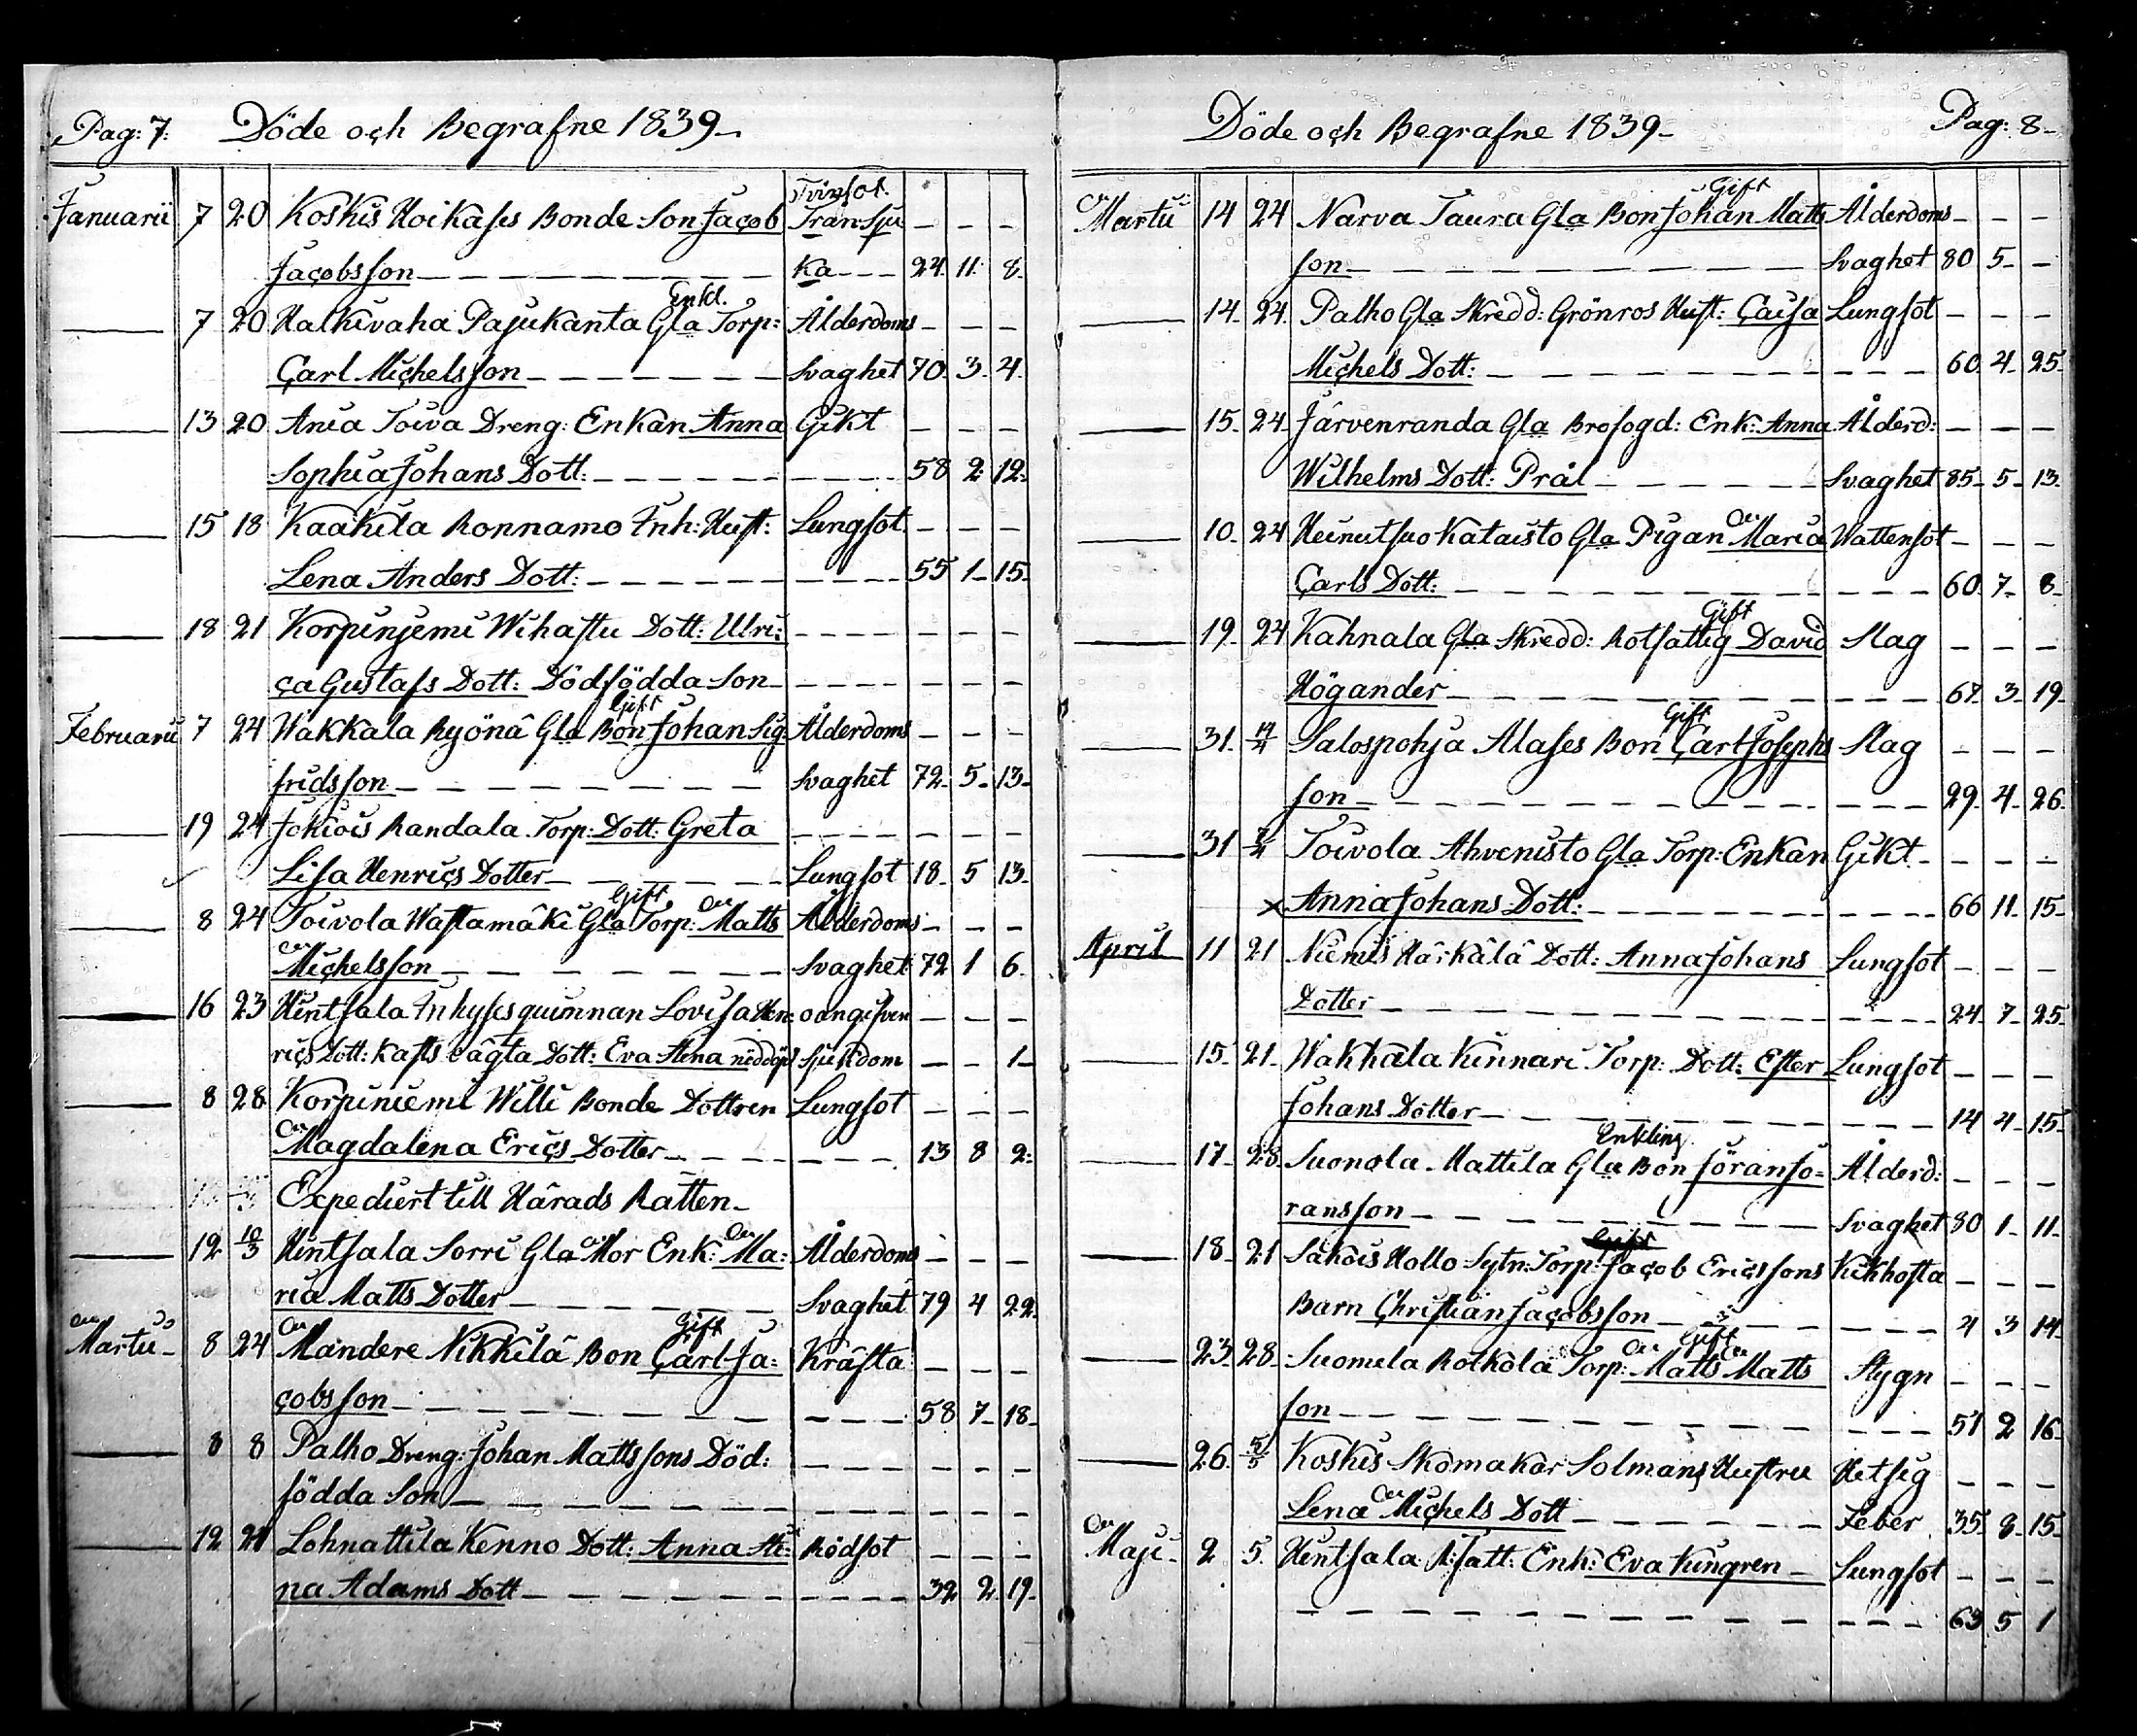 Pag: 7. Döde och Begrafne 1839
Tvinsot.
Januarii 7 20 Koskis Hoikases Bonde Son Jacob Transju
Jacobsson ka 24. 11. 8.
Enkl.
7 20 Halkivaha Pajukanta Gla Torp: Ålderdoms
Carl Michelsson Svaghet 70. 3. 4.
13 20 Ania Toiva Dreng: Enkan Anna Gikt
Sophia Johans Dott: 58 2 12.
15 18 Kaakila Ronnamo Inh: Hust: Lungsot
Lena Anders Dott: 55 1 15
18 21 Korpinjemi Wihastu Dott: Ulri:
ca Gustafs Dott: Dödfödda Son
Gift
Februarii 7 24 Wakkala Ryönä Gla Bon Johan Sig Ålderdoms
fridsson Svaghet 72. 5. 13
19 24 Jokiois Randala Torp: Dott: Greta
Lisa Henrics Dotter Lungsot 18. 5 13
Gift
8 24 Toivola Wastamäki Gla Torp: Matts Ålderdoms
Michelsson Svaghet 72 1 6.
16 23 Hintsala Inhyses quinnan Lovisa Hen: oangifven
rics Dott: Dott: Eva Stena nöddöpt sjukdom 1
8 28 Korpiniemi Willi Bonde Dottren Lungsot
Magdalena Erics Dotter 13 8 2.
Expediert till Härads Rätten
12 10/3 Hintsala Sorri Gla Mor Enk: Ma: Ålderdoms
ria Matts Dotter Svaghet 79 4 22.
Gift
Martii 8 24 Mandere Nikkilä Bon Carl Ja: Kräfta
cobsson 58 7 18
8 8 Palho Dreng: Johan Mattssons Död:
födda Son
12 21 Lohnattila Kenno Dott: Anna Sti: Rödsot
na Adams Dott 32 2 19.
Döde och Begrafne 1839 Pag: 8
Gift
Martii 14 24 Narva Taura Gla Bon Johan Matts Ålderdoms
son Svaghet 80 5
14 24 Palho Gla Skredd: Grönros Hust: Caisa Lungsot
Michels Dott: 60 4 25
15 24 Järvenranda Gla Brofogd: Enk: Anna Ålderd:
Wilhelms Dott: Prål Svaghet 85 5 13
10 24 Heinutsuo Kataisto Gla Pigan Maria Wattensot
Carls Dott: 60 7 8
Gift
19 24 Kahnala Gla Skredd: Rotfattig David Slag
Högander 67 3 19
Gift
31 14/4 Salospohja Alases Bon Carl Josephs Slag
son 29 4 26.
31 7/4 Toivola Ahvenisto Gla Torp: Enkan Gikt
x Anna Johans Dott: 66 11 15
April 11 21 Niemis Härkälä Dott: Anna Johans Lungsot
Dotter 24 7 25
15 21 Wakkala Kinnari Torp: Dott: Ester Lungsot
Johans Dotter 14 4 15
Enkling
17 28 Suonola Mattila Gla Bon Jöran Jö= Ålderd:
ransson Svaghet 80 1 11.
18 21 Sakois Hollo Sytn: Torp: Jacob Ericssons Kikhosta
Barn Christian Jacobsson 4 3 14
Gift
23 28 Suomela Rotkola Torp: Matts Matts Stygn
son 51 2 16
26 5/5 Koskis Skomakar Solmans Hustru Hetsig
Lena Michels Dott Feber 35 8 15
Maji 2 5. Hintsala R:fatt: Enk: Eva Kungren Lungsot
63 5 1